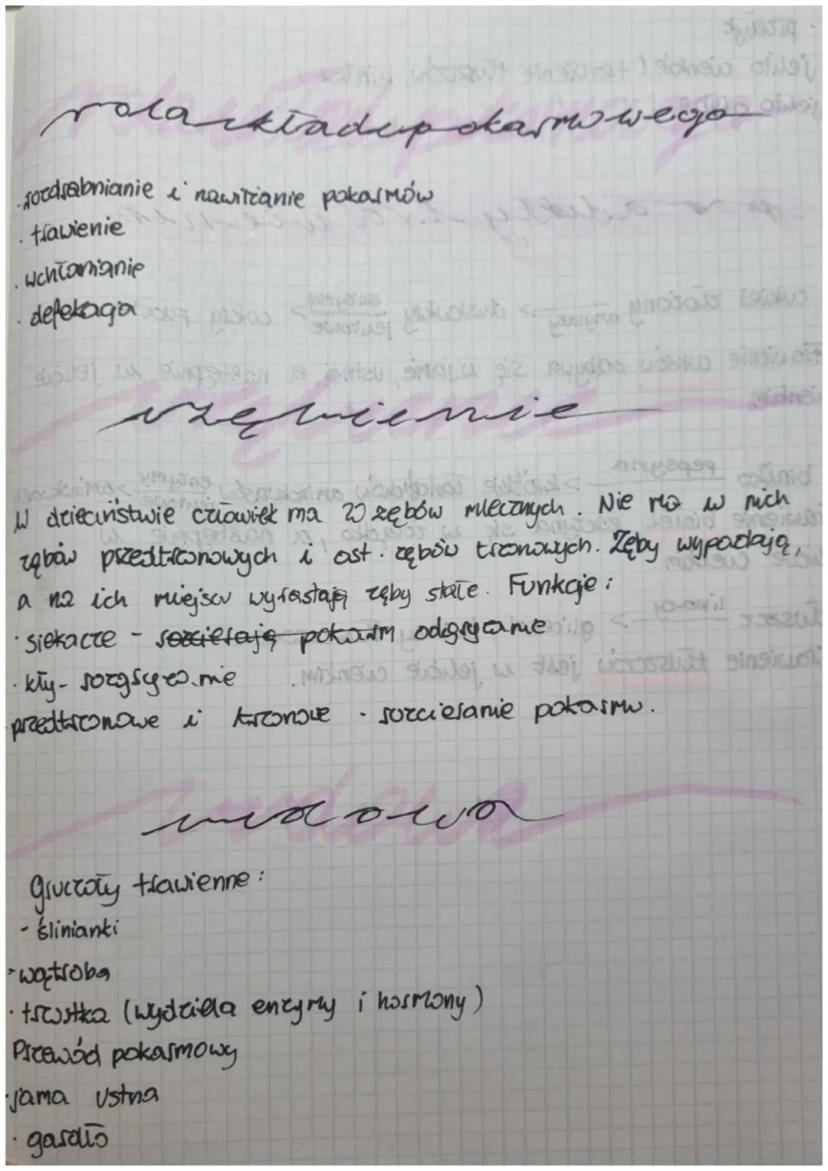 rola układu pokarmowego
· rozdrabnianie i nawilżanie pokarmów
· trawienie
· wchłanianie
· defekacja
uzębienie
W dzieciństwie człowiek ma 20 zębów mlecznych. Nie ma w nich
zębów przedtrzonowych i ost. zębów trzonowych. Zęby wypadają,
a na ich miejscu wyrastają zęby stałe. Funkcje:
· siekacze - rozcierają pokarm odgryzanie
· kły - rozgryzanie
przedtrzonowe i trzonowe - rozcieranie pokarmu.
budowa
gruczoły trawienne:
- ślinianki
· wątroba
· trzustka (wydziela enzymy i hormony)
Przewód pokarmowy
· jama ustna
· gardło